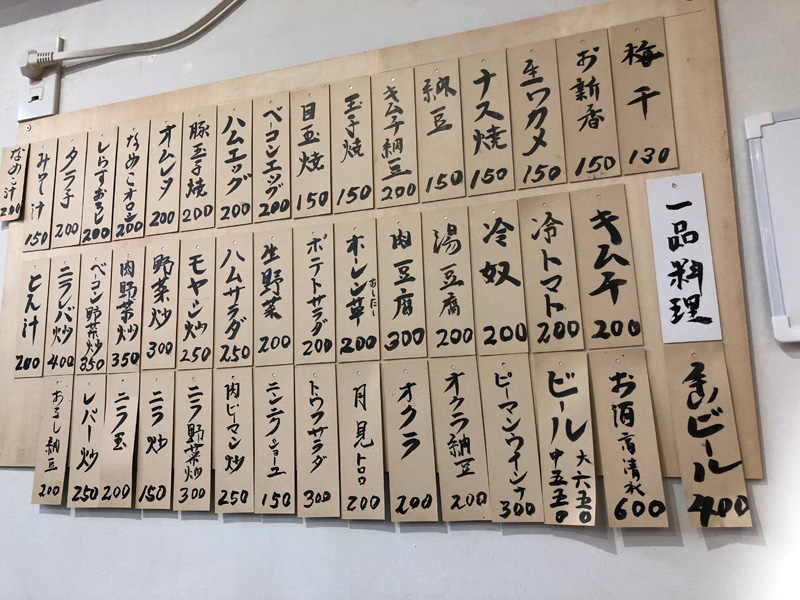 梅干 130
お新香 150
生ワカメ 150
ナス焼 150
納豆 150
キムチ納豆 200
玉子焼 150
目玉焼 150
ベーコンエッグ 200
ハムエッグ 200
豚玉子焼 200
オムレツ 200
なめこオロシ 200
しらすおろし 200
タラ子 200
みそ汁 150
なめこ汁 200
一品料理
キムチ 200
冷トマト 200
冷奴 200
湯豆腐 200
肉豆腐 300
ホーレン草 おしたし 200
ポテトサラダ 200
生野菜 200
ハムサラダ 250
モヤシ炒 250
野菜炒 300
肉野菜炒 350
ベーコン野菜炒 350
ニラレバ炒 400
とん汁 200
生ビール 400
お酒 高清水 600
ビール 大六五〇 中五五〇
ピーマンウインナ 300
オクラ納豆 200
オクラ 200
月見トロロ 200
トウフサラダ 300
ニンニクショーユ 150
肉ピーマン炒 250
ニラ野菜炒 300
ニラ炒 150
ニラ玉 200
レバー炒 250
おろし納豆 200